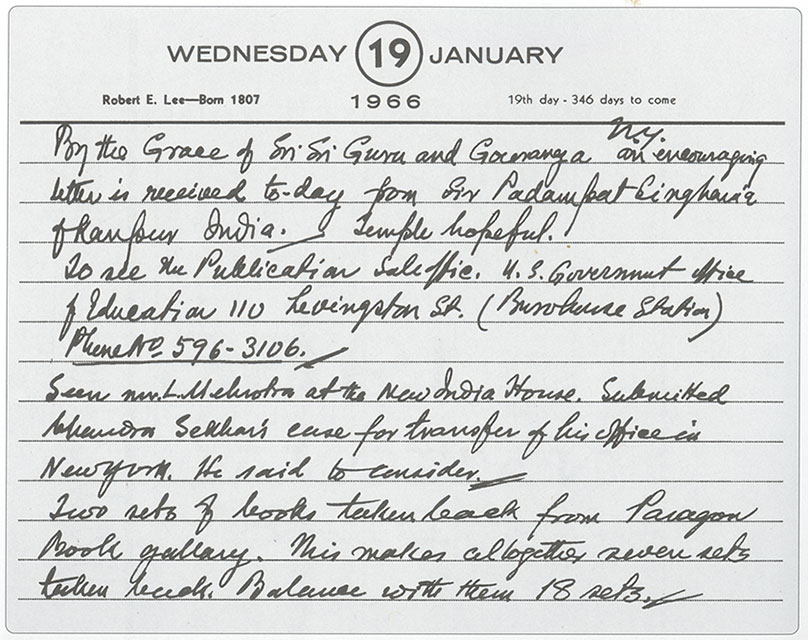 WEDNESDAY 19 JANUARY
Robert E. Lee—Born 1807 1966 19th day - 346 days to come
N.Y.
By the Grace of Sri Sri Guru and Gouranga an encouraging
letter is received to-day from Sir Padampat Singhania
of Kanpur India. Temple hopeful.
To see the Publication Sale office. U.S. Government office
of Education 110 Levingston St. (Burohouse Station)
Phone No 596-3106.
Seen mr. L. Mehrotra at the New India House. Submitted
Chandra Sekhar's case for transfer of his office in
Newyork. He said to consider.
Two sets of books taken back from Paragon
Book gallary. This makes altogether seven sets
taken back. Balance with them 18 sets.